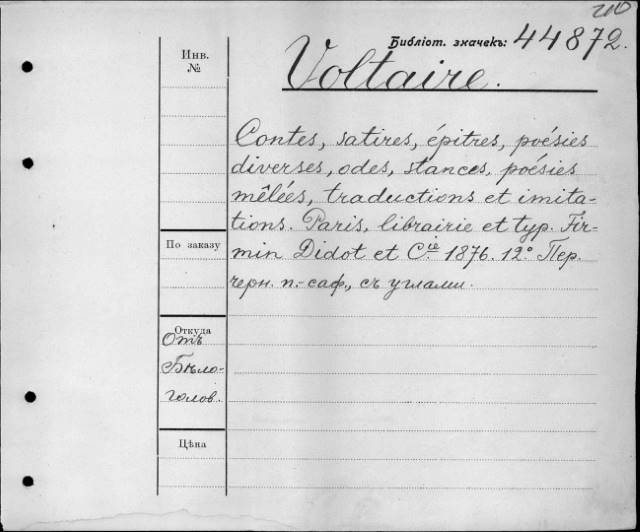 210
Библіот. значекъ: 44872.
Инв.
№
Voltaire.
Contes, satires, épitres, poésies
diverses, odes, stances, poésies
mêlées, traductions et imita-
tions. Paris, librairie et typ. Fir-
По заказу
min Didot et C.ie 1876. 12° Пер.
черн. п.-саф., съ углами.
Откуда
Отъ
Бѣло-
голов.
Цѣна